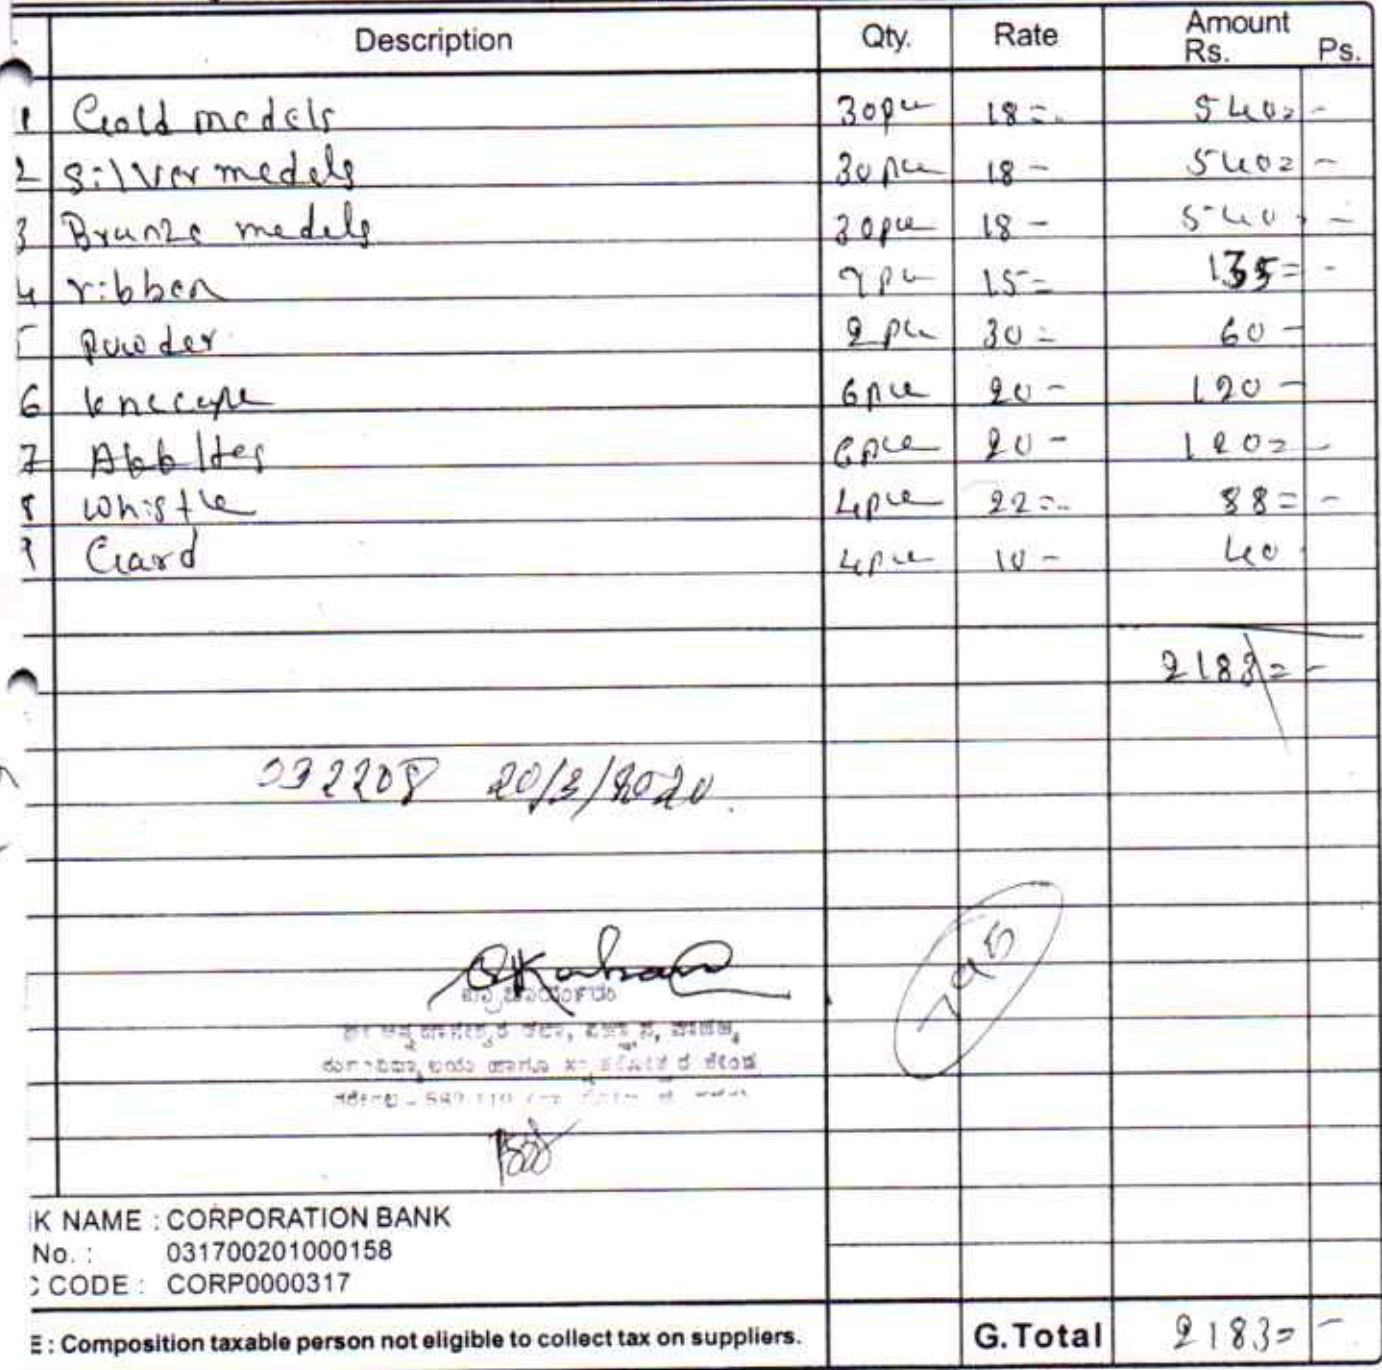 Description Qty. Rate Amount Rs. Ps.
1 Gold medels 30pce 18=. 540= -
2 Silver medels 30pce 18 - 540= -
3 Brunze medels 30pce 18 - 540 -
4 ribben 9pce 15= 135= -
5 powder 2pce 30= 60 -
6 kneecape 6pce 20 - 120 -
7 6pce 20 - 120= -
8 whistle 4pce 22=. 88= -
9 Gard 4pce 10 - 40
2183= -
032208 20/3/2020.
795
IK NAME : CORPORATION BANK
No. : 031700201000158
C CODE : CORP0000317
E : Composition taxable person not eligible to collect tax on suppliers. G.Total 2183= -